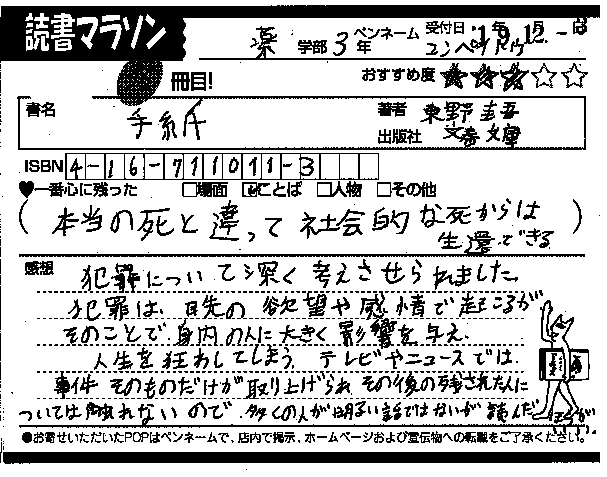 読書マラソン
薬 学部 3年 ペンネーム コンペイトウ 受付日 '19年12月-日
冊目!
おすすめ度 ★★★☆☆
書名 手紙
著者 東野圭吾
出版社 文春文庫
ISBN 4-16-711011-3
♥一番心に残った □場面 ☑ことば □人物 □その他
(本当の死と違って社会的な死からは
生還できる)
感想
犯罪について深く考えさせられました。
犯罪は、目先の欲望や感情で起こるが
そのことで身内の人に大きく影響を与え、
人生を狂わしてしまう。テレビやニュースでは
事件そのものだけが取り上げられ その後の残された人に
ついては触れないので、多くの人が明るい話ではないが読んだ
ほうが
●お寄せいただいたPOPはペンネームで、店内で掲示、ホームページおよび宣伝物への転載をご了承ください。